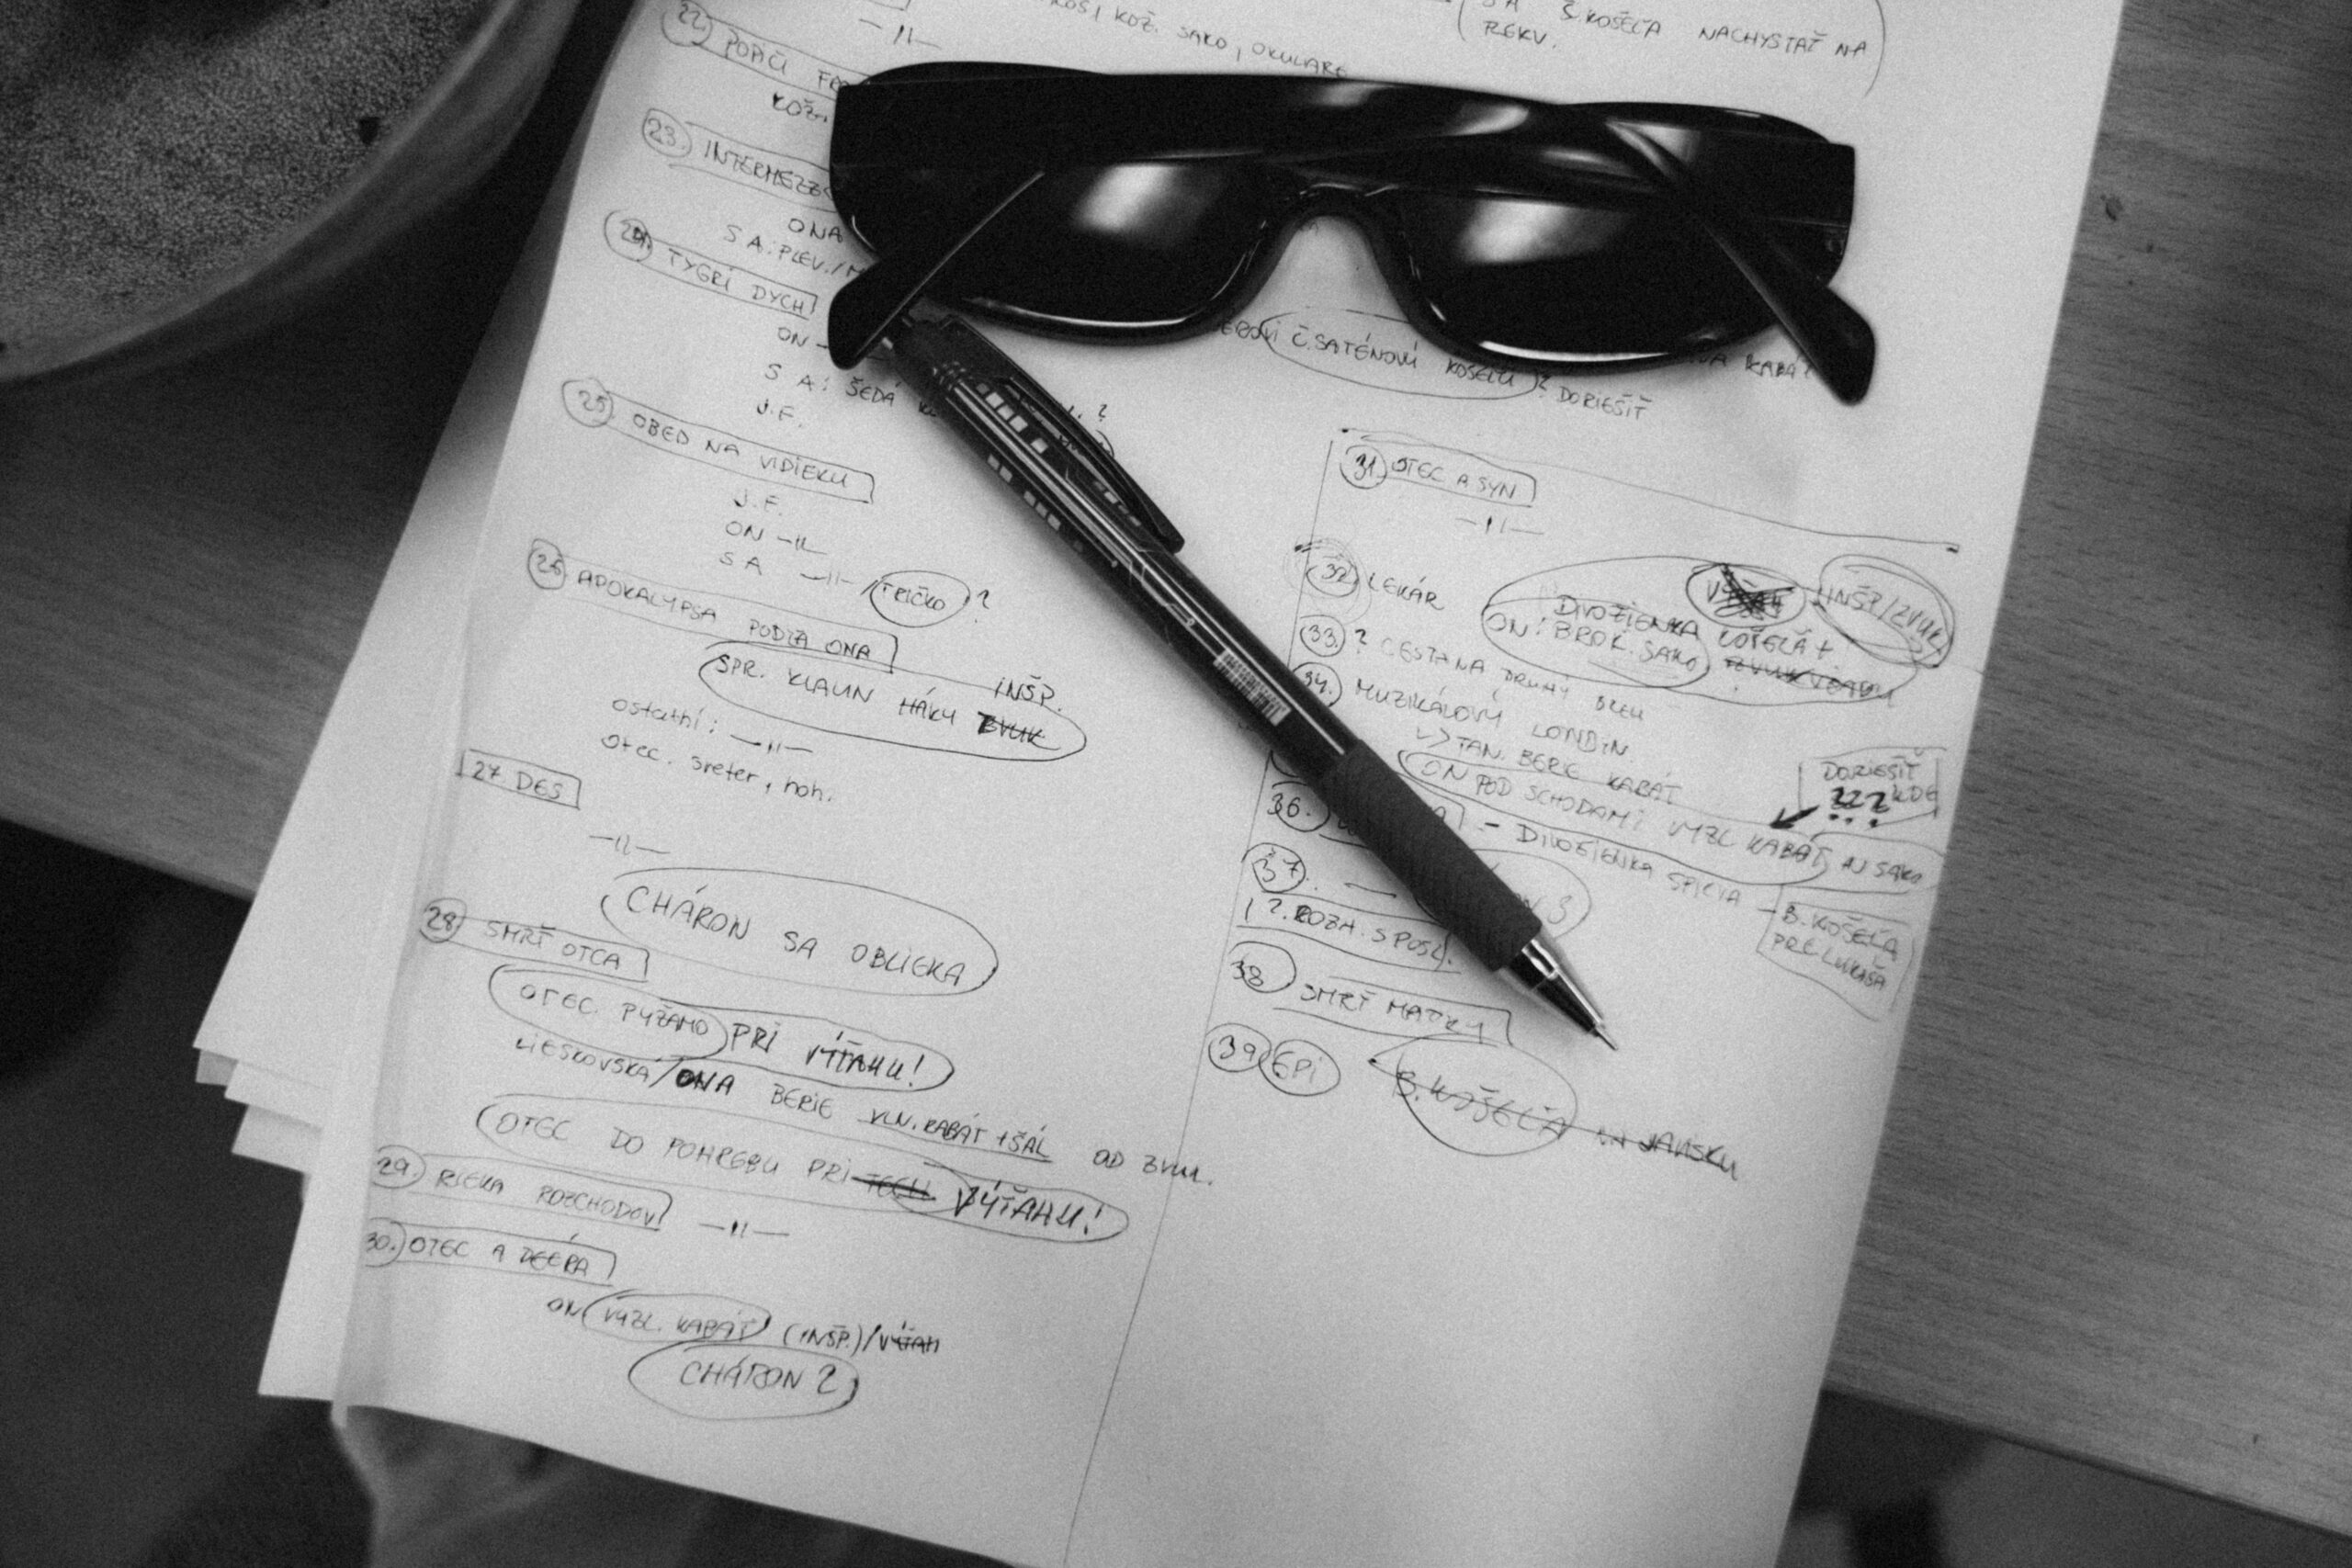 KOŽ. SAKO, OKULARE
Š. KOŠEĽA NACHYSTAŤ NA
REKV.
22.
—||—
KOŽ.
23. INTERMEZZO
ONA
SA: PLEV./
24. TYGRÍ DYCH
ON —
SA: ŠEDÁ
J.F.
25. OBED NA VIDIEKU
J.F.
ON —||—
SA —||— / TRIČKO ?
26. APOKALYPSA PODĽA ONA
INŠP.
SPR. KLAUN HÁKY ZVUK
ostatní: —||—
otec. sveter, noh.
27. DES
—||—
CHÁRON SA OBLIEKA
28. SMRŤ OTCA
OTEC. PYŽAMO PRI VÝŤAHU!
LIESKOVSKÁ/ONA BERIE VLN. KABÁT + ŠÁL OD ZVUK.
OTEC DO POHREBU PRI TECH VÝŤAHU!
29. RIEKA ROZCHODOV —||—
30. OTEC A DCÉRA
ON VYZL. KABÁT (INŠP.)/VÝŤAH
CHÁRON 2
Č. SATÉNOVÚ KOŠEĽU ? DORIEŠIŤ
KABÁT
31. OTEC A SYN
—||—
32. LEKÁR
VÝŤAH INŠP/ZVUK
DIVOŽIENKA KOŠEĽA +
ON: BROK. SAKO
33. ? CESTA NA DRUHÝ BREH
34. MUZIKÁLOVÝ LONDÝN
↳ TAN. BERIE KABÁT
DORIEŠIŤ
??? KDE
ON POD SCHODAMI VYZL KABÁT AJ SAKO
36. – DIVOŽIENKA SPIEVA – B. KOŠEĽA
PRE LUKÁŠA
37. — 3
? ROZH. S POSL.
38 SMRŤ MATKY
39 EPI
B. KOŠEĽA NA JANSKU